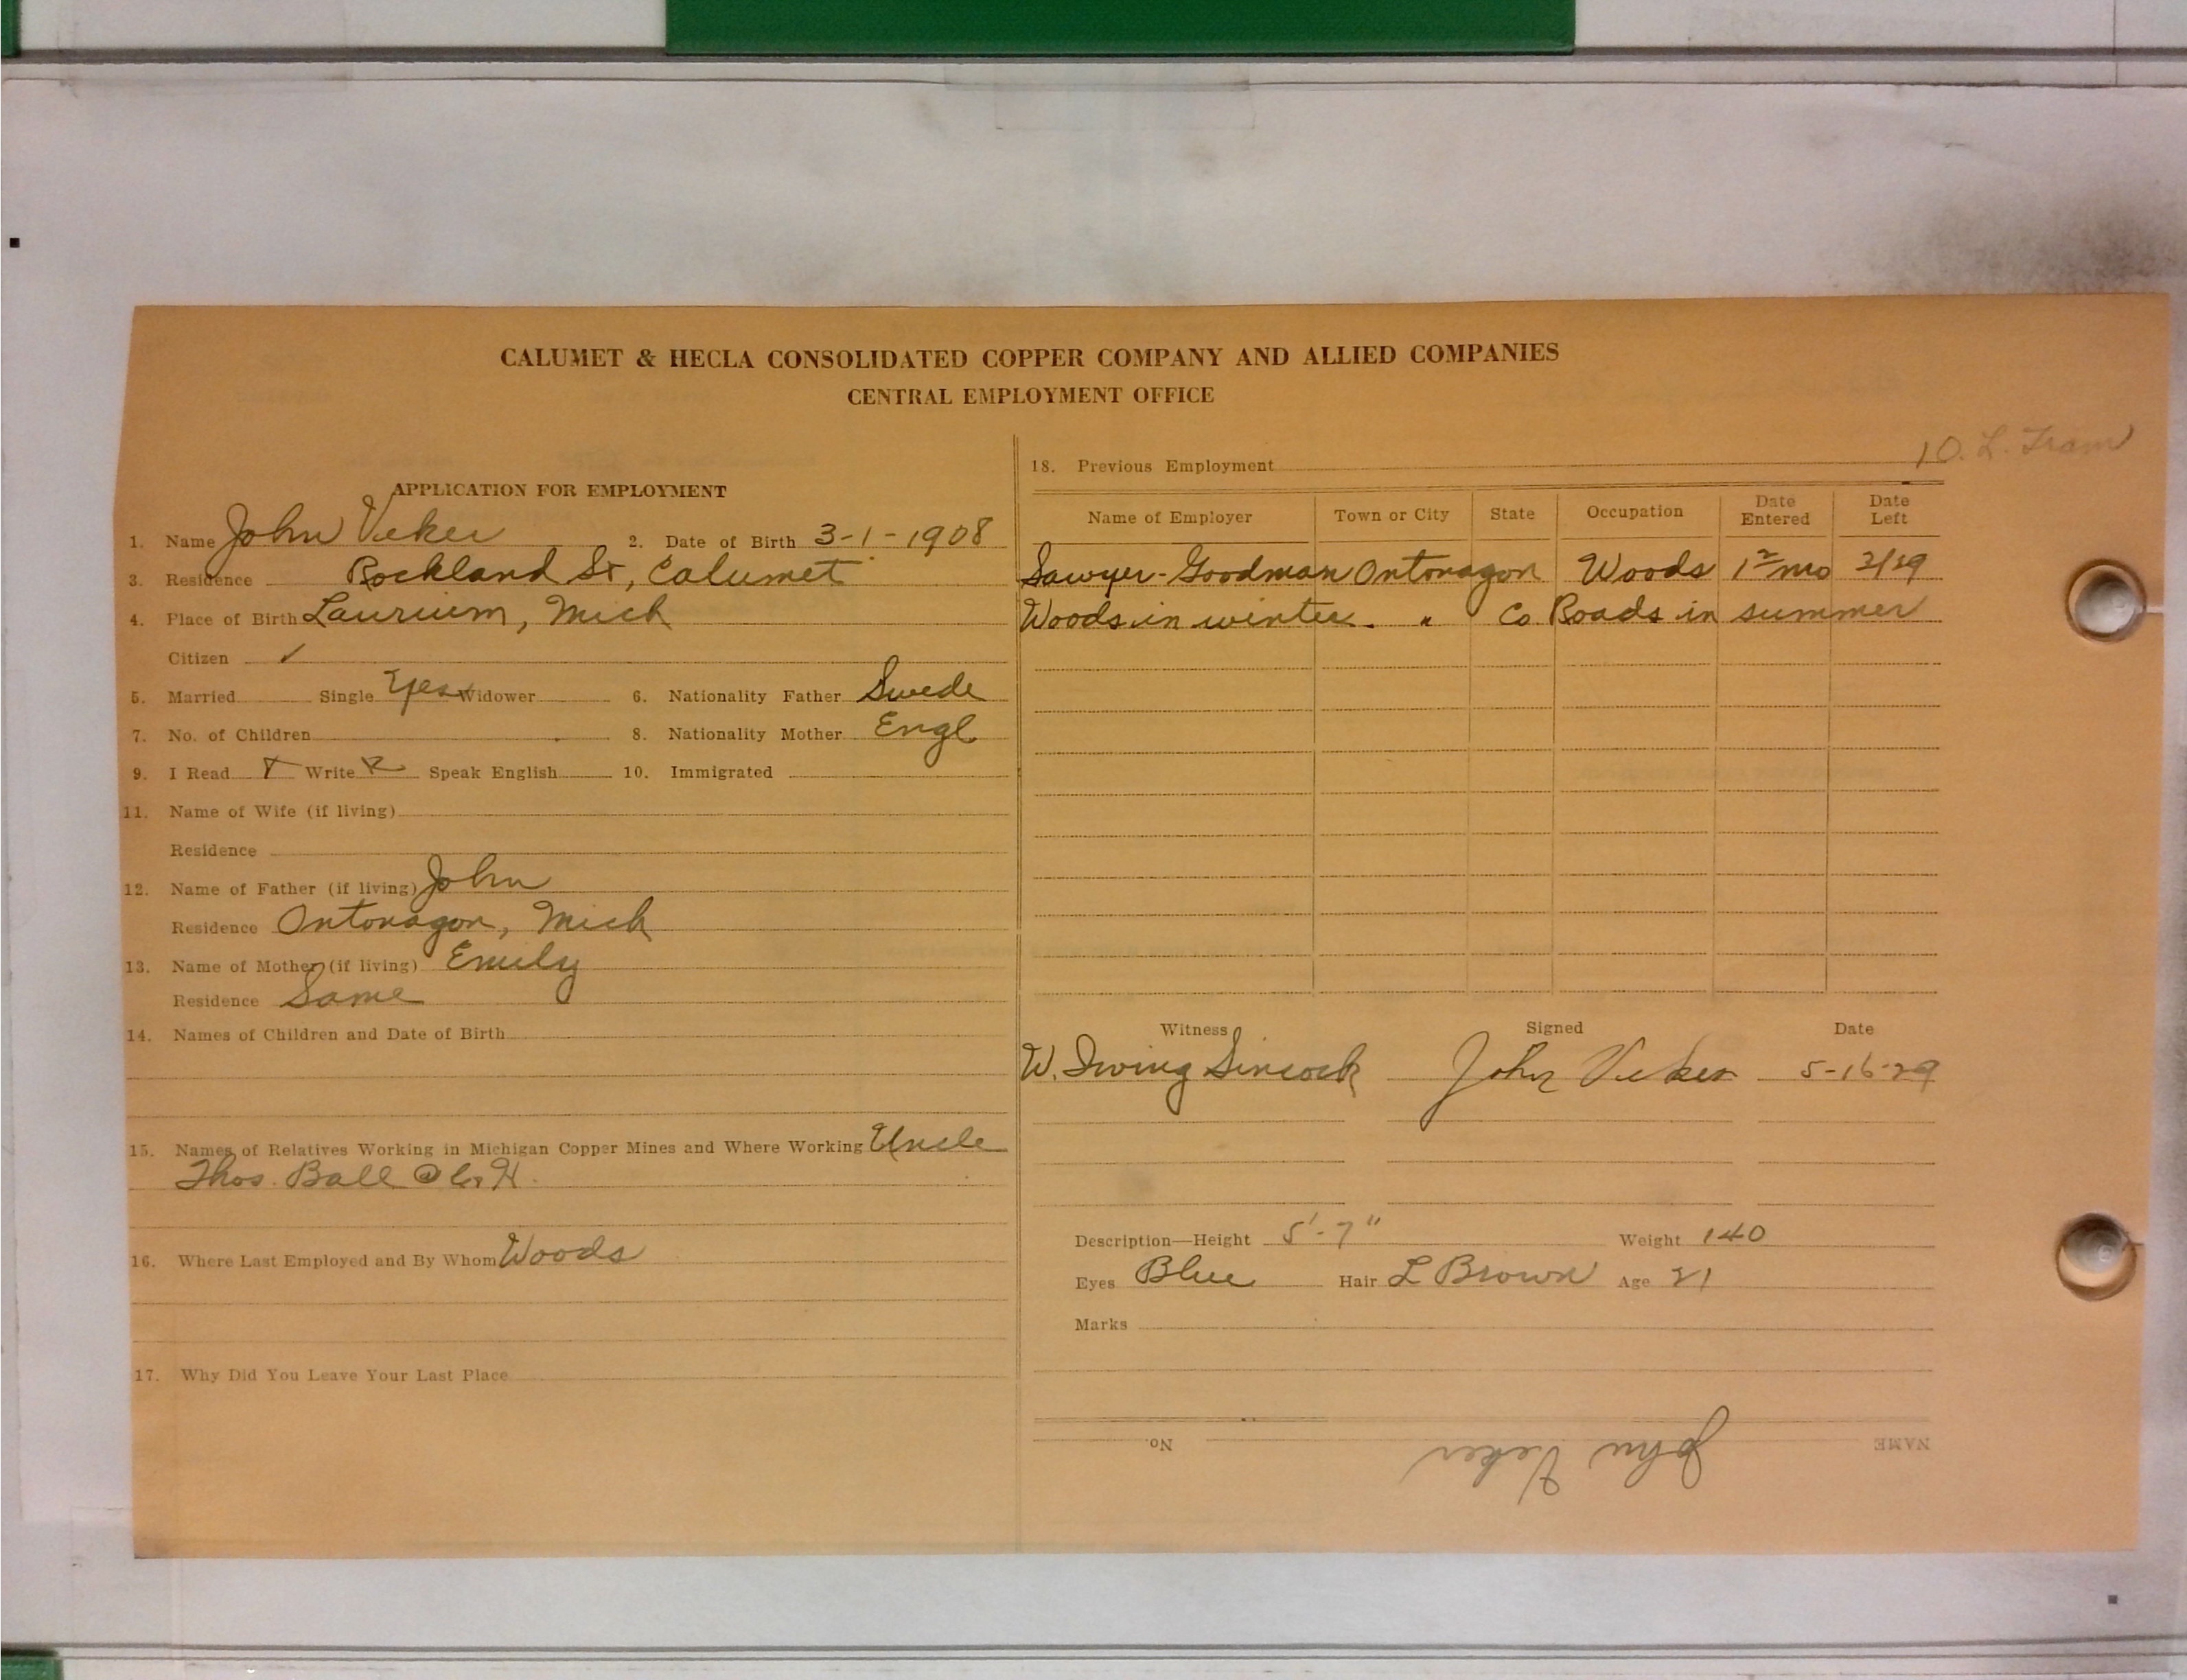 CALUMET & HECLA CONSOLIDATED COPPER COMPANY AND ALLIED COMPANIES
CENTRAL EMPLOYMENT OFFICE
APPLICATION FOR EMPLOYMENT
1. Name John Veker 2. Date of Birth 3-1-1908
3. Residence Rockland St, Calumet
4. Place of Birth Laurium, Mich
Citizen ✓
5. Married Single Yes Widower 6. Nationality Father Swede
7. No. of Children 8. Nationality Mother Engl
9. I Read Write Speak English 10. Immigrated
11. Name of Wife (if living)
Residence
12. Name of Father (if living) John
Residence Ontonagon, Mich
13. Name of Mother (if living) Emily
Residence Same
14. Names of Children and Date of Birth
15. Names of Relatives Working in Michigan Copper Mines and Where Working Uncle
Thos. Ball @ C. & H.
16. Where Last Employed and By Whom Woods
17. Why Did You Leave Your Last Place
10. L. Tram
18. Previous Employment
Name of Employer Town or City State Occupation Date Entered Date Left
Sawyer-Goodman Ontonagon Woods mo 3/29
Woods in winter. " Co Roads in summer
Witness Signed Date
W. Irving Sincock John Veker 5-16-29
Description—Height 5'-7" Weight 140
Eyes Blue Hair L Brown Age 21
Marks
NAME John Veker No.